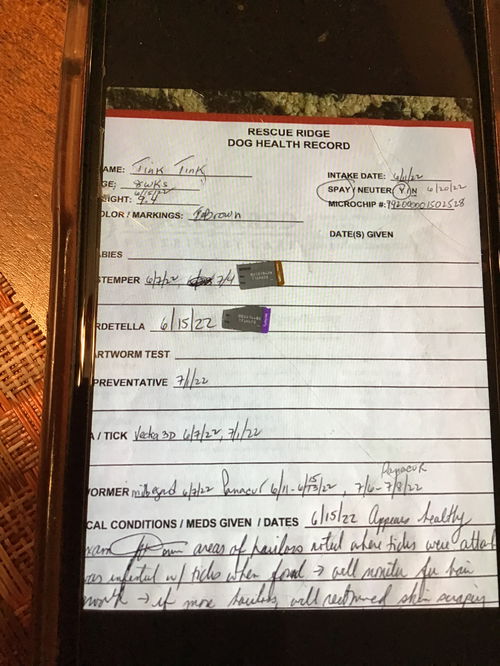 RESCUE RIDGE
DOG HEALTH RECORD
AME: Tink Tink
INTAKE DATE:
GE: 8wks
6/15/22
SPAY / NEUTER: Y/N 6/20/22
EIGHT: 9.4
MICROCHIP #:
OLOR / MARKINGS: Brown
DATE(S) GIVEN
ABIES
STEMPER 6/7/22, 7/4
RDETELLA 6/15/22
ARTWORM TEST
PREVENTATIVE 7/1/22
A / TICK Vectra 3D 6/7/22, 7/1/22
Panacur
ORMER 6/7/22 Panacur 6/11 - 7/6 - 7/8/22
CAL CONDITIONS / MEDS GIVEN / DATES 6/15/22 Appears healthy
xam areas of hairloss noted where ticks were attach
was infested w/ ticks when found → will monitor for hair
growth → if more hairloss, will recommend skin scraping